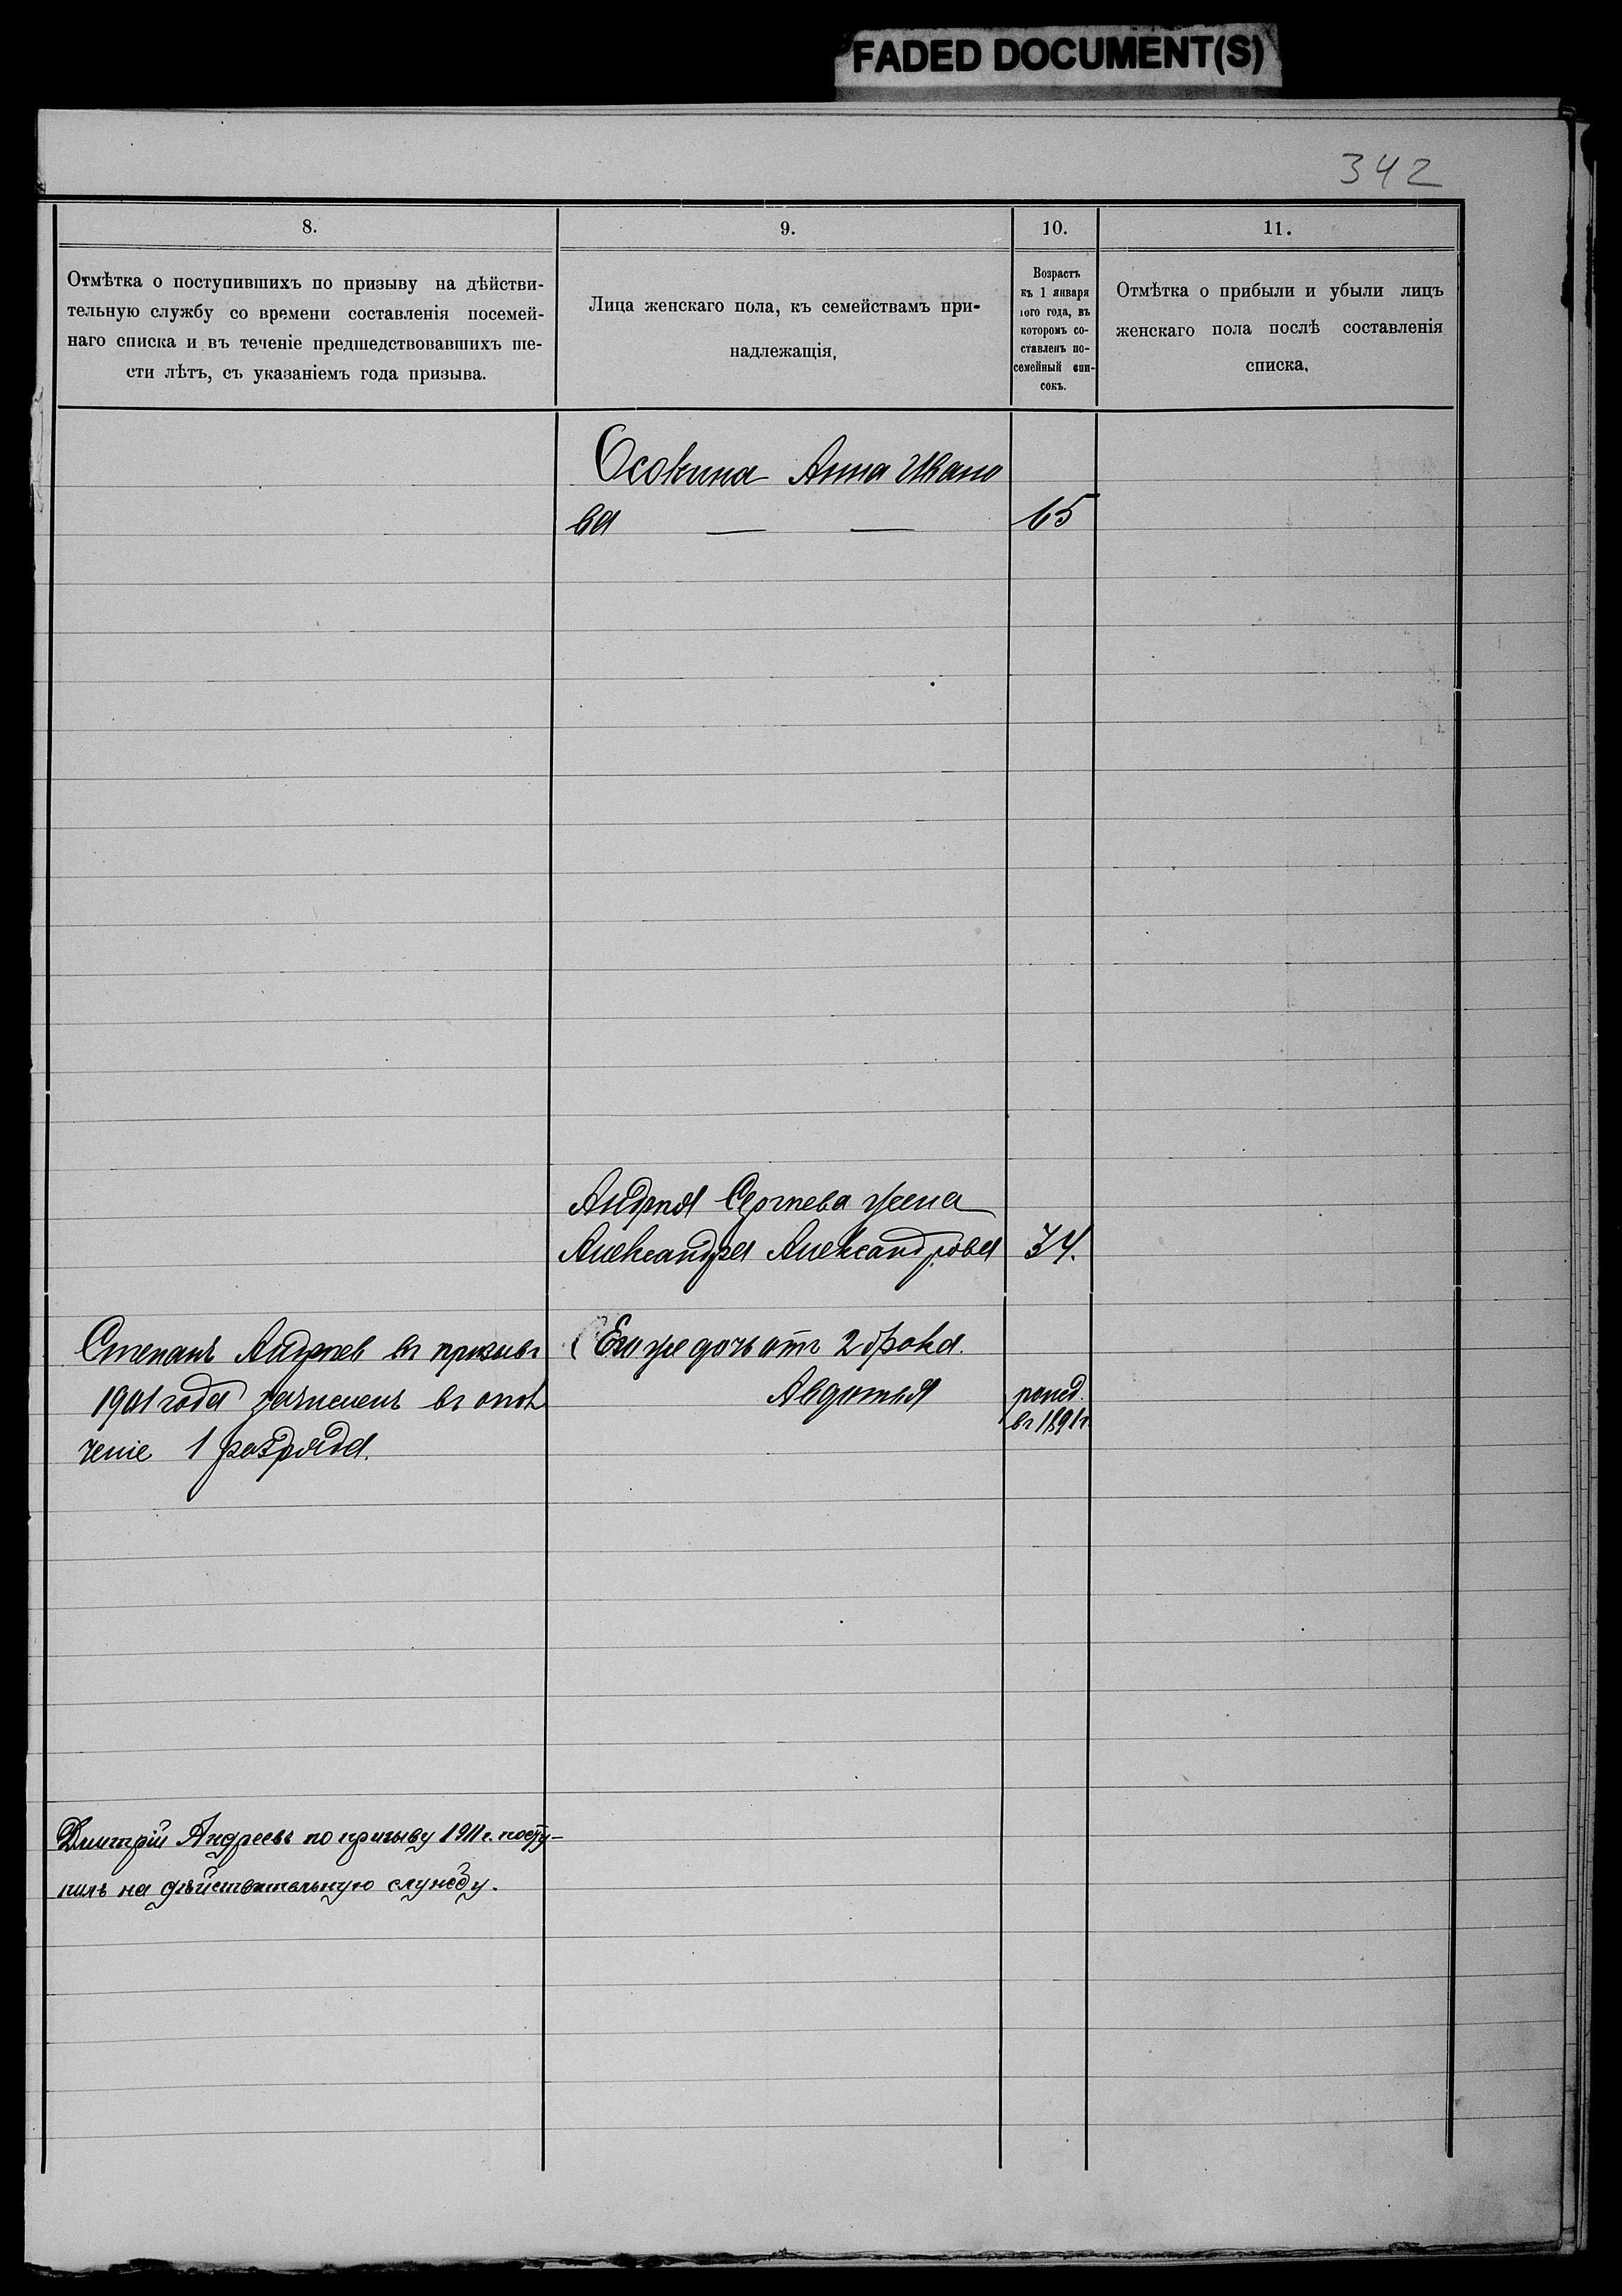 FADED DOCUMENT(S)
342
8.
9.
10.
11.
Отмѣтка о поступившихъ по призыву на дѣйстви-
тельную службу со времени составленія посемей-
наго списка и въ теченіе предшедствовавшихъ ше-
сти лѣтъ, съ указаніемъ года призыва.
Лица женскаго пола, къ семействамъ при-
надлежащія,
Возрастъ
къ 1 января
того года, въ
которомъ со-
ставленъ по-
семейный спи-
сокъ.
Отмѣтка о прибыли и убыли лицъ
женскаго пола послѣ составленія
списка.
Осокина Анна Ивано
ва — — 65
Андрѣя Сергѣева жена
Александра Александрова 34.
Степанъ Андрѣев въ призывъ
1901 года зачислен въ опол
ченіе 1 разряда.
Его же дочь отъ 2 брака.
Авдотья
рожд.
въ 1891 г.
Дмитрій Андреевъ по призыву 1911 г. посту-
пилъ на дѣйствительную службу.